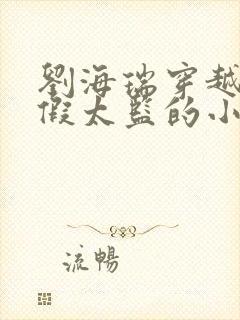 劉海瑞穿越
假太監的小
流暢